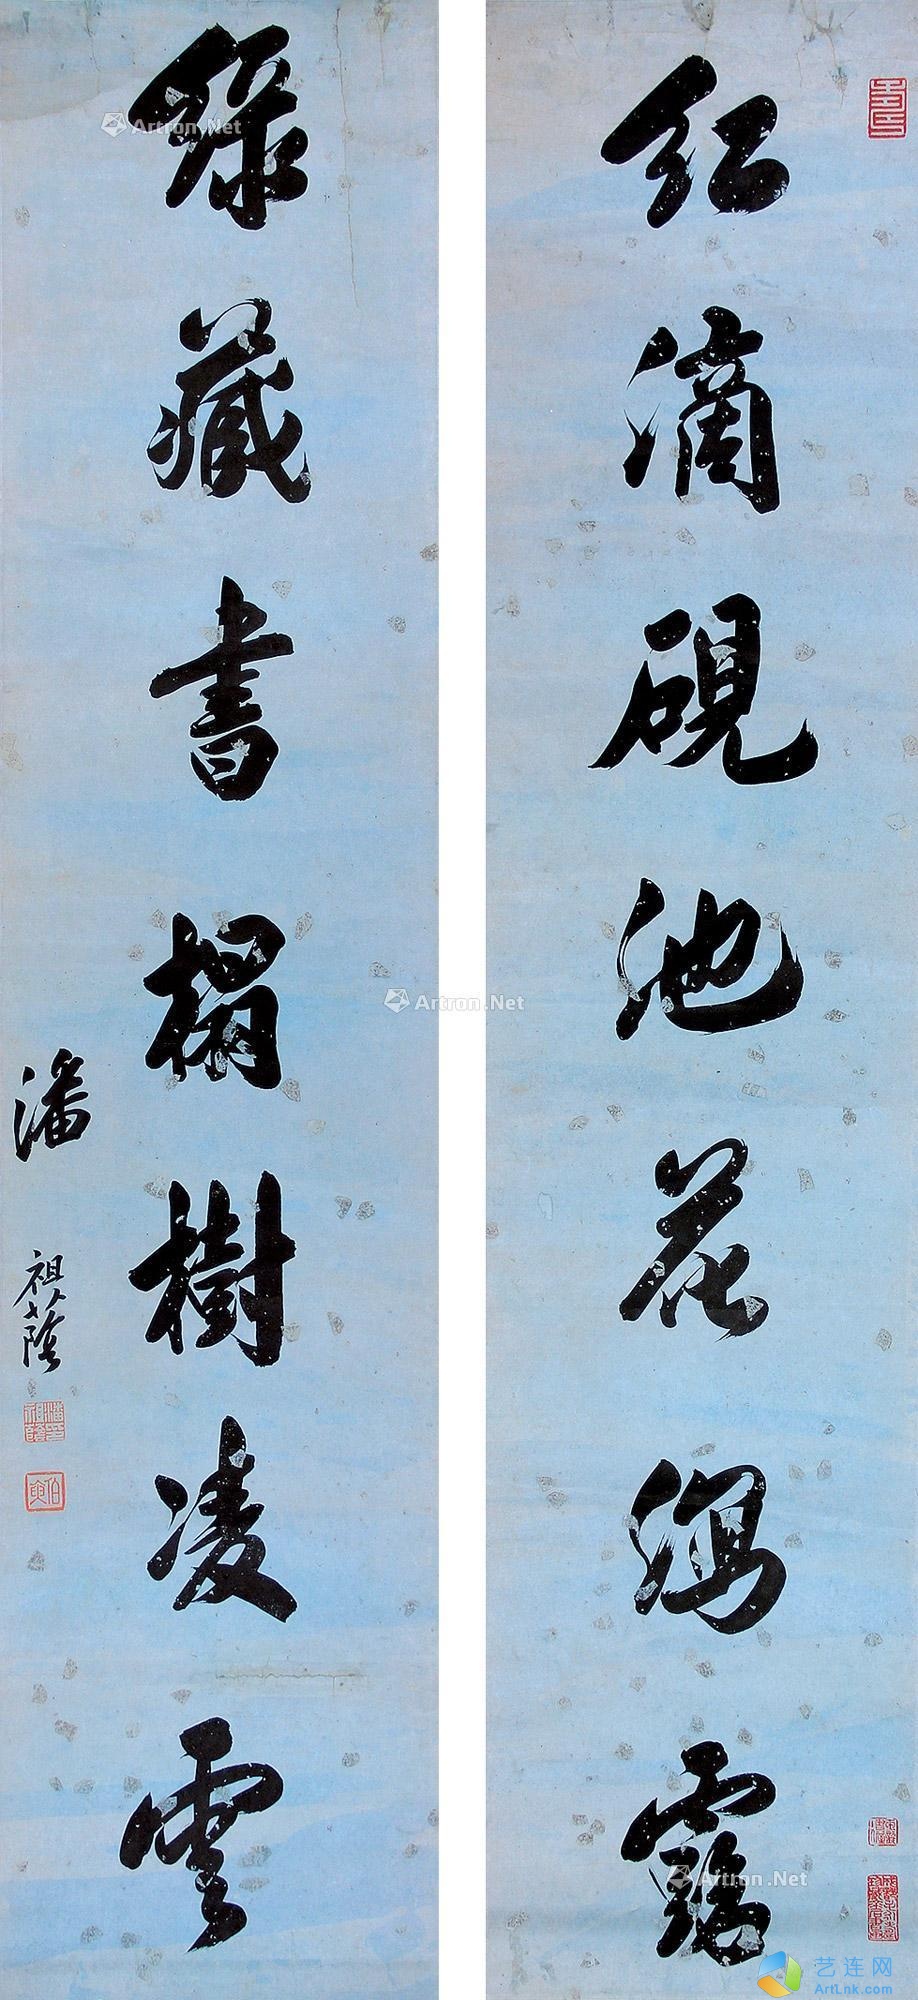 紅滴硯池花瀉露
綠藏書榻樹凌雲
潘祖蔭
潘祖蔭印
伯寅
Artron.Net
Artron.Net
Artron.Net
艺连网
ArtLnk.com